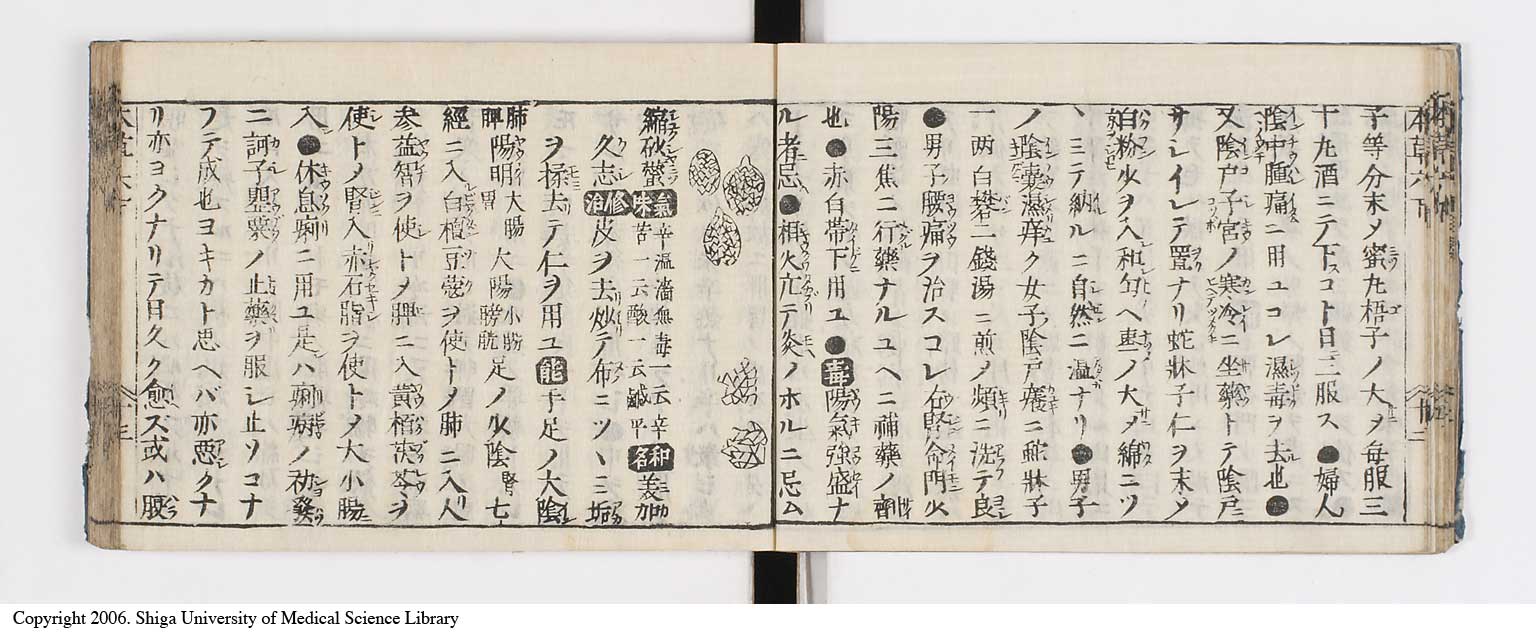 子等分末メ蜜丸梧子ノ大メ毎服三
十九酒ニテ下スコト日ニ三服ス●婦人
陰中腫痛ニ用ユコレ濕毒ヲ去也●
又陰戸子宮ノ寒冷ニ坐藥トテ陰戸ニ
サレイレテ置ナリ蛇牀子仁ヲ末メ
白粉少ヲ入和匀ヘ棗ノ大メ綿ニツ
ヽミテ納ルニ自然ニ温ナリ●男子
ノ陰嚢濕痒ク女子陰戸癢ニ蛇牀子
一两白礬二錢湯ニ煎ノ頻ニ洗テ良
●男子腰痛ヲ治スコレ右腎命門火
陽三焦ニ行藥ナルユヘニ補藥ノ劑
也●赤白帶下用ユ●毒陽氣強盛ナ
ル者忌●相火亢テ炎ノホルニ忌ム
縮砂蜜 氣味 辛温濇無毒一云辛苦一云酸一云鹹平 和名 美加
久志 修治 皮ヲ去炒テ布ニツヽミ垢
ヲ揉去テ仁ヲ用ユ 能 手足ノ太陰
肺脾陽明大腸胃太陽小腸膀胱足ノ少陰腎七
經ニ入白檀豆蔻ヲ使トメ肺ニ入人
参益智ヲ使トメ脾ニ入黄栢茯苓ヲ
使トメ腎入赤石脂ヲ使トメ大小腸
入●休息痢ニ用ユ是ハ痢病ノ初發
ニ訶子罌粟ノ止藥ヲ服シ止ソコナ
フテ成也ヨキカト思ヘバ亦惡クナ
リ亦ヨクナリテ日久ク愈ズ或ハ腹
Copyright 2006. Shiga University of Medical Science Library